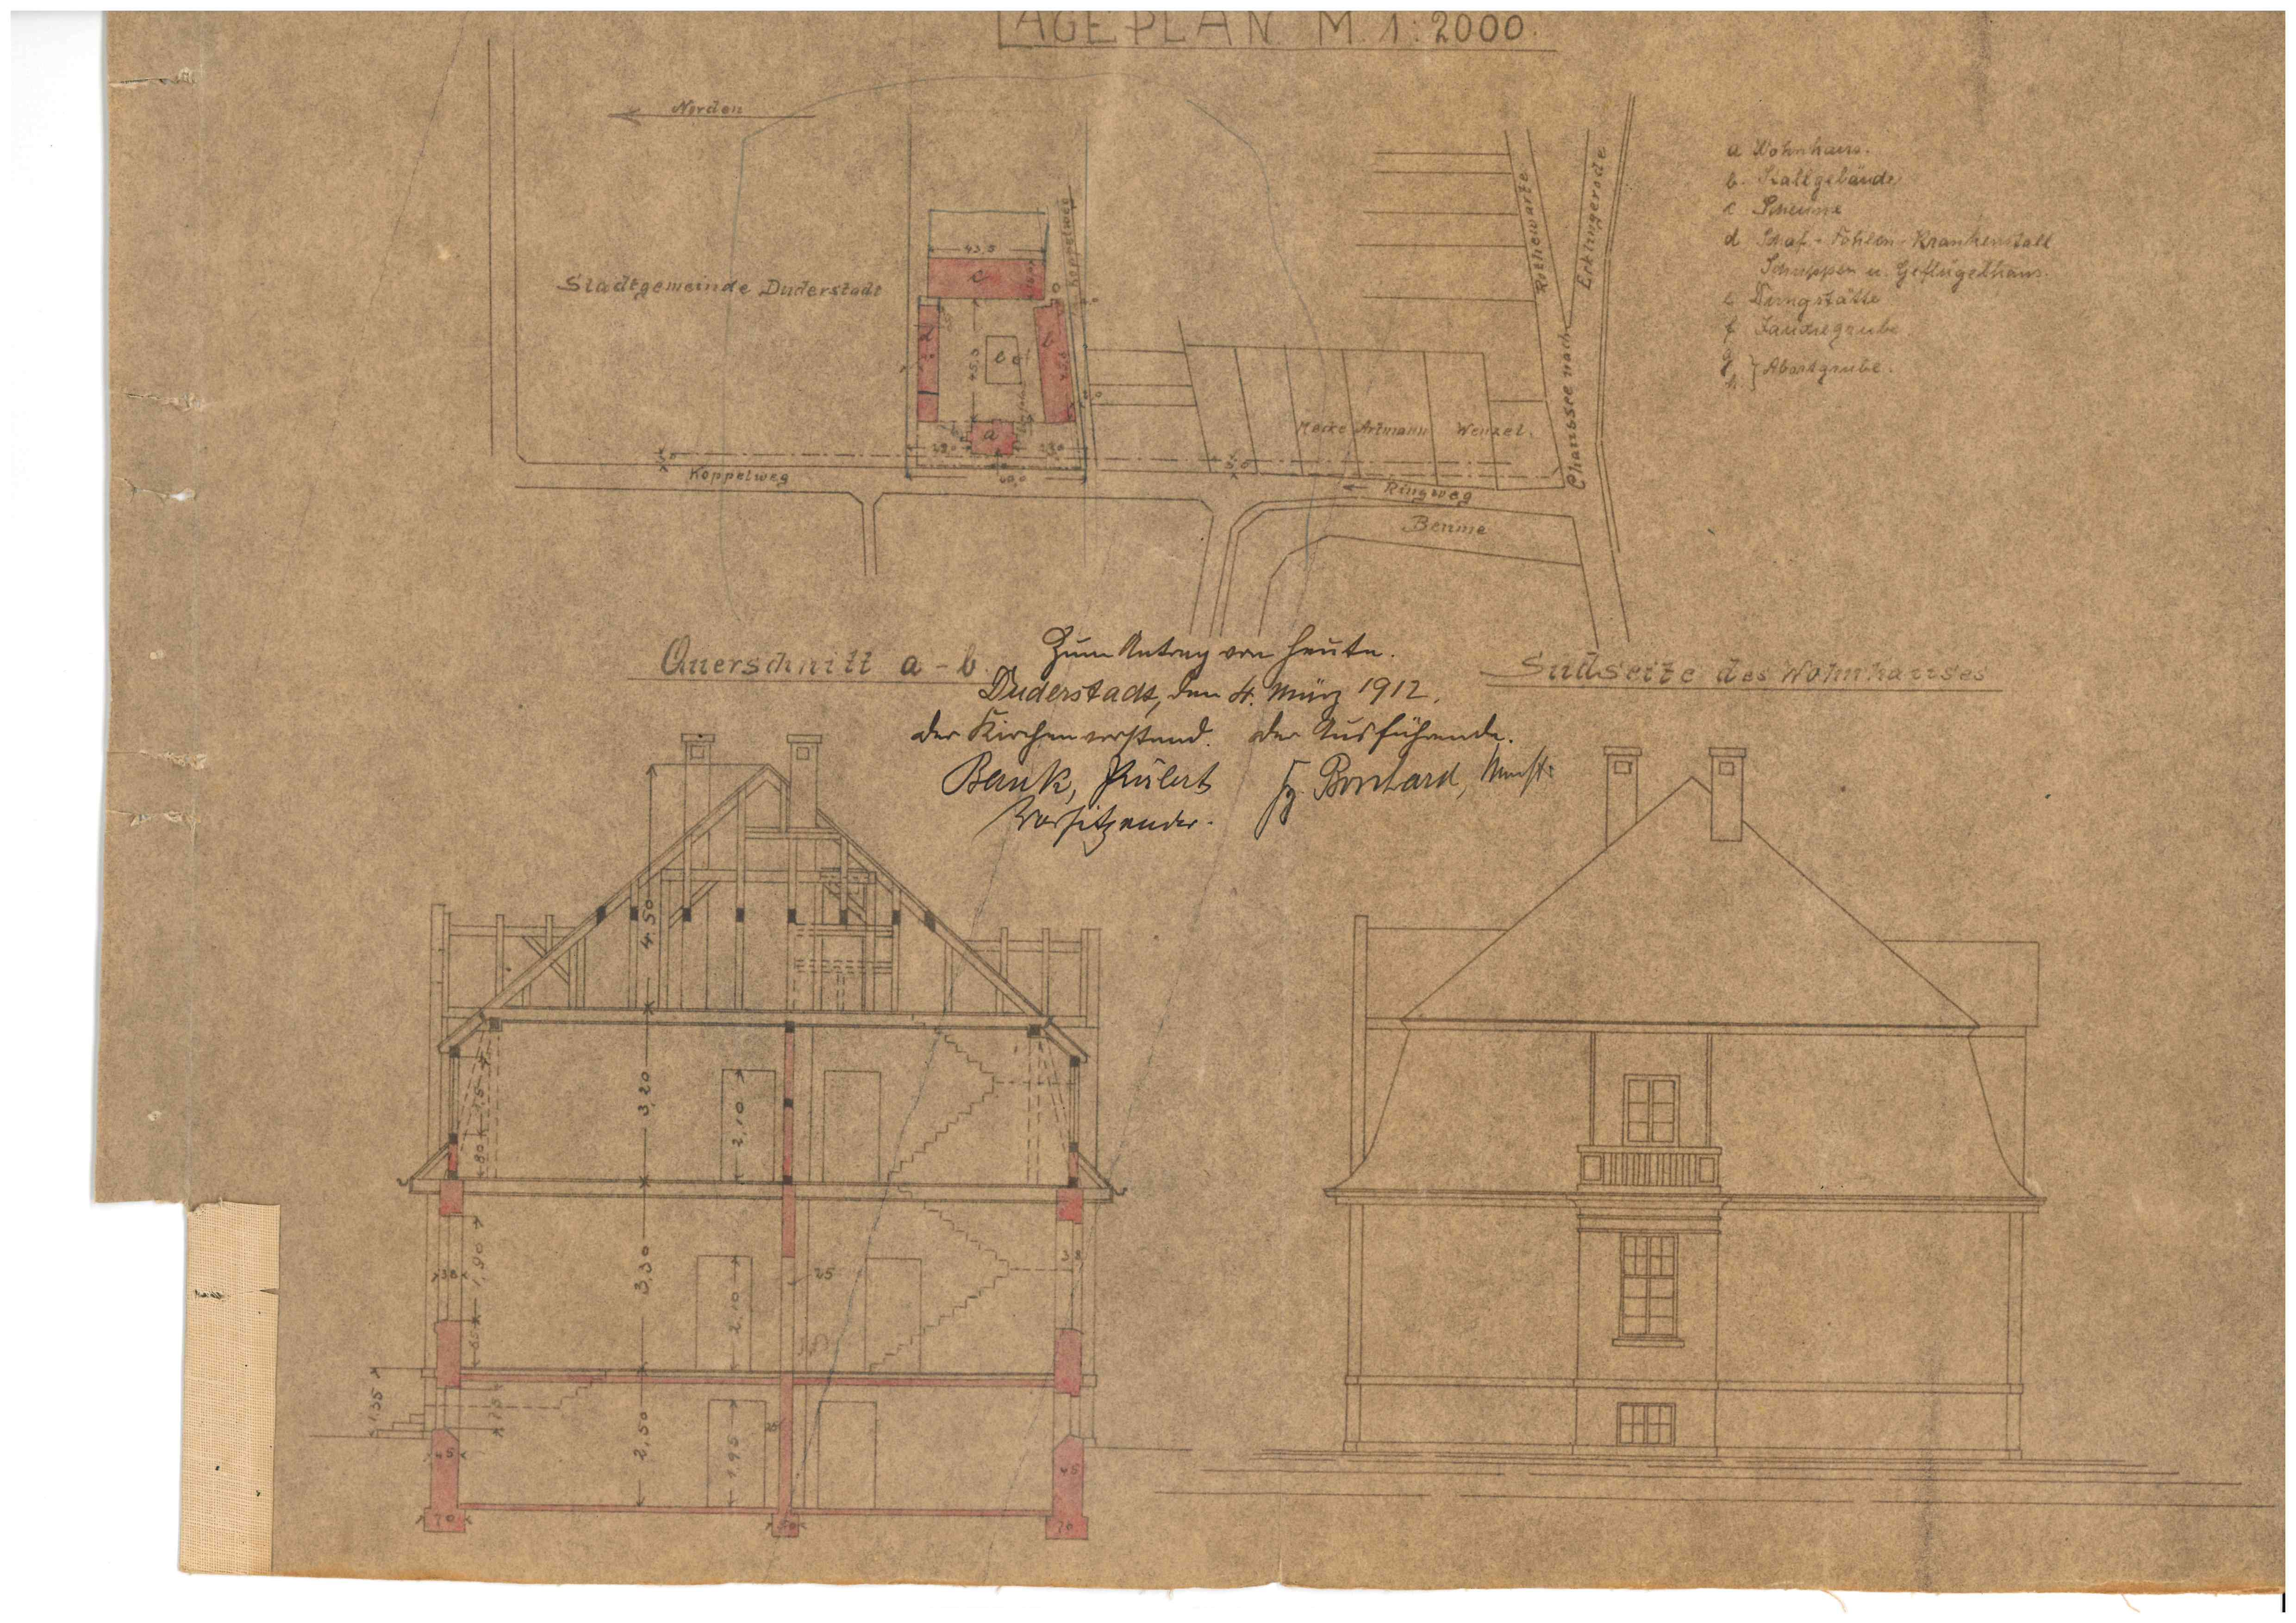 LAGEPLAN M. 1:2000.
Norden
Stadtgemeinde Duderstadt
Koppelweg
43,5
c
d
b
e
f
45,0
a
60,0
Koppelweg
Ringweg
Benme
Artmann
Wenzel.
Chaussee nach
Rothewarte
Erklingerode
a Wohnhaus.
b. Stallgebäude
c Scheune
d. Schaf-Fohlen-Krankenstall
Schuppen u. Geflügelhaus.
e. Dungstätte
f. Jauchegrube.
g.
h. } Abortgrube.
Querschnitt a-b.
Zum Antrag von heute.
Duderstadt, den 4. März 1912.
Der Kirchenvorstand. Der Ausführende.
Bank,
Vorsitzender.
Südseite des Wohnhauses
4.50
3,20
2,10
80
3,30
1,90
2,10
38
25
38
1.35
2,50
1,95
25
45
70
50
70